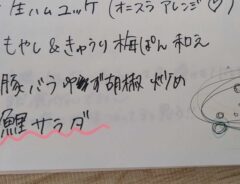 生ハムユッケ (オニスラ アレンジ♡)
もやし&きゅうり 梅ぽん 和え
豚バラ ゆず胡椒 炒め
鯉サラダ